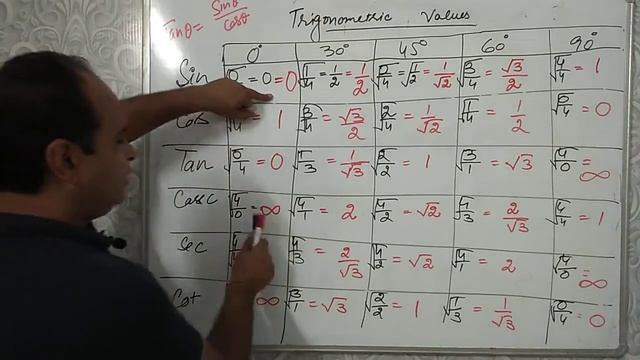 Trigonometric Values
Tanθ = Sinθ/Cosθ
0° 30° 45° 60° 90°
Sin = 0 = 0 √1/4 = 1/2 = 1/2 = √1/2 = 1/√2 √3/4 = √3/2 √4/4 = 1
Cos = 1 √3/4 = √3/2 √2/4 = 1/√2 √1/4 = 1/2 √0/4 = 0
Tan √0/4 = 0 √1/3 = 1/√3 √2/2 = 1 √3/1 = √3 √4/0 = ∞
√4/0 = ∞ √4/1 = 2 √4/2 = √2 √4/3 = 2/√3 √4/4 = 1
Sec √4/3 = 2/√3 √4/2 = √2 √4/1 = 2 √4/0 = ∞
Cot ∞ √3/1 = √3 √2/2 = 1 √1/3 = 1/√3 √0/4 = 0